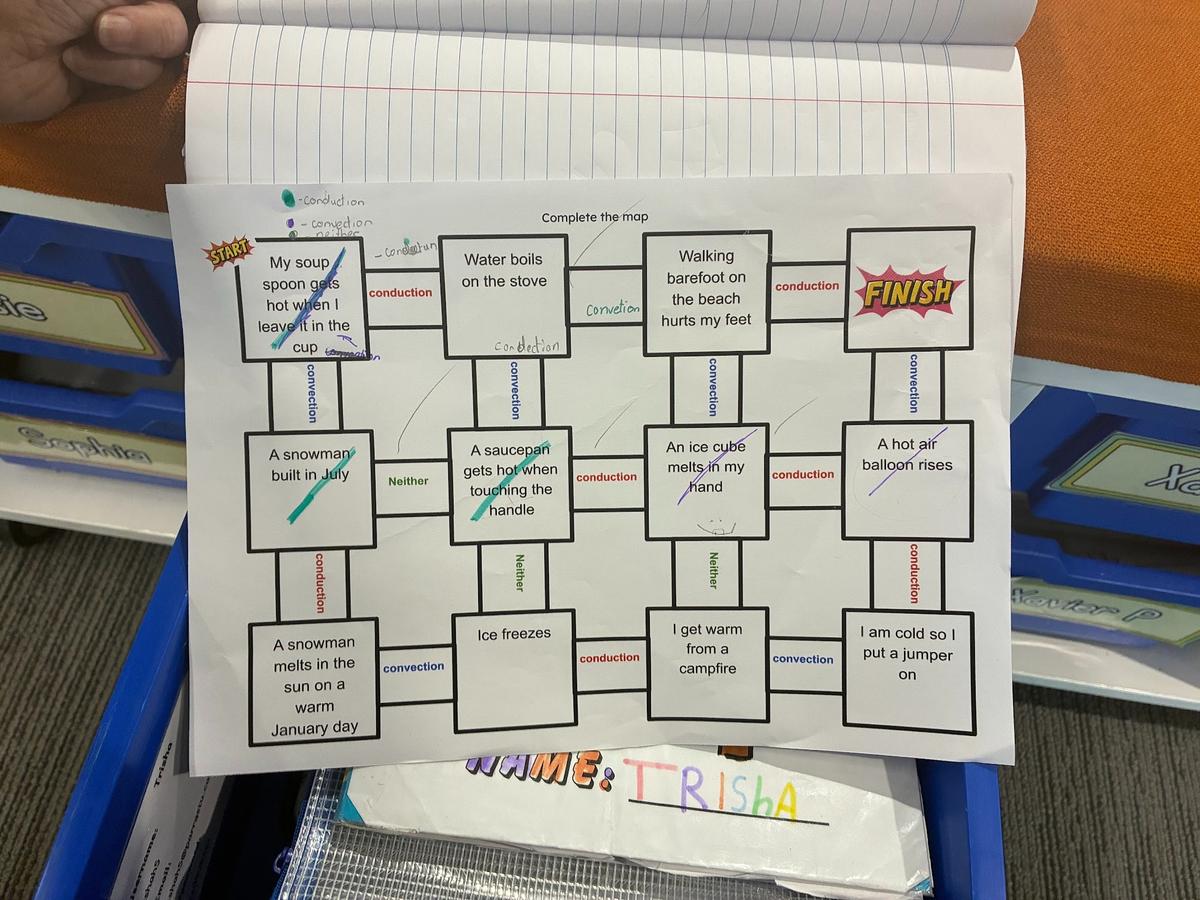 -conduction
- convection
neither
Complete the map
START
My soup
spoon gets
hot when I
leave it in the
cup
conduction
Water boils
on the stove
Condection
Convetion
Walking
barefoot on
the beach
hurts my feet
conduction
FINISH
convection
convection
convection
convection
A snowman
built in July
Neither
A saucepan
gets hot when
touching the
handle
conduction
An ice cube
melts in my
hand
conduction
A hot air
balloon rises
conduction
Neither
Neither
conduction
A snowman
melts in the
sun on a
warm
January day
convection
Ice freezes
conduction
I get warm
from a
campfire
convection
I am cold so I
put a jumper
on
Sophia
Xavier P
NAME: TRIShA
Trisha